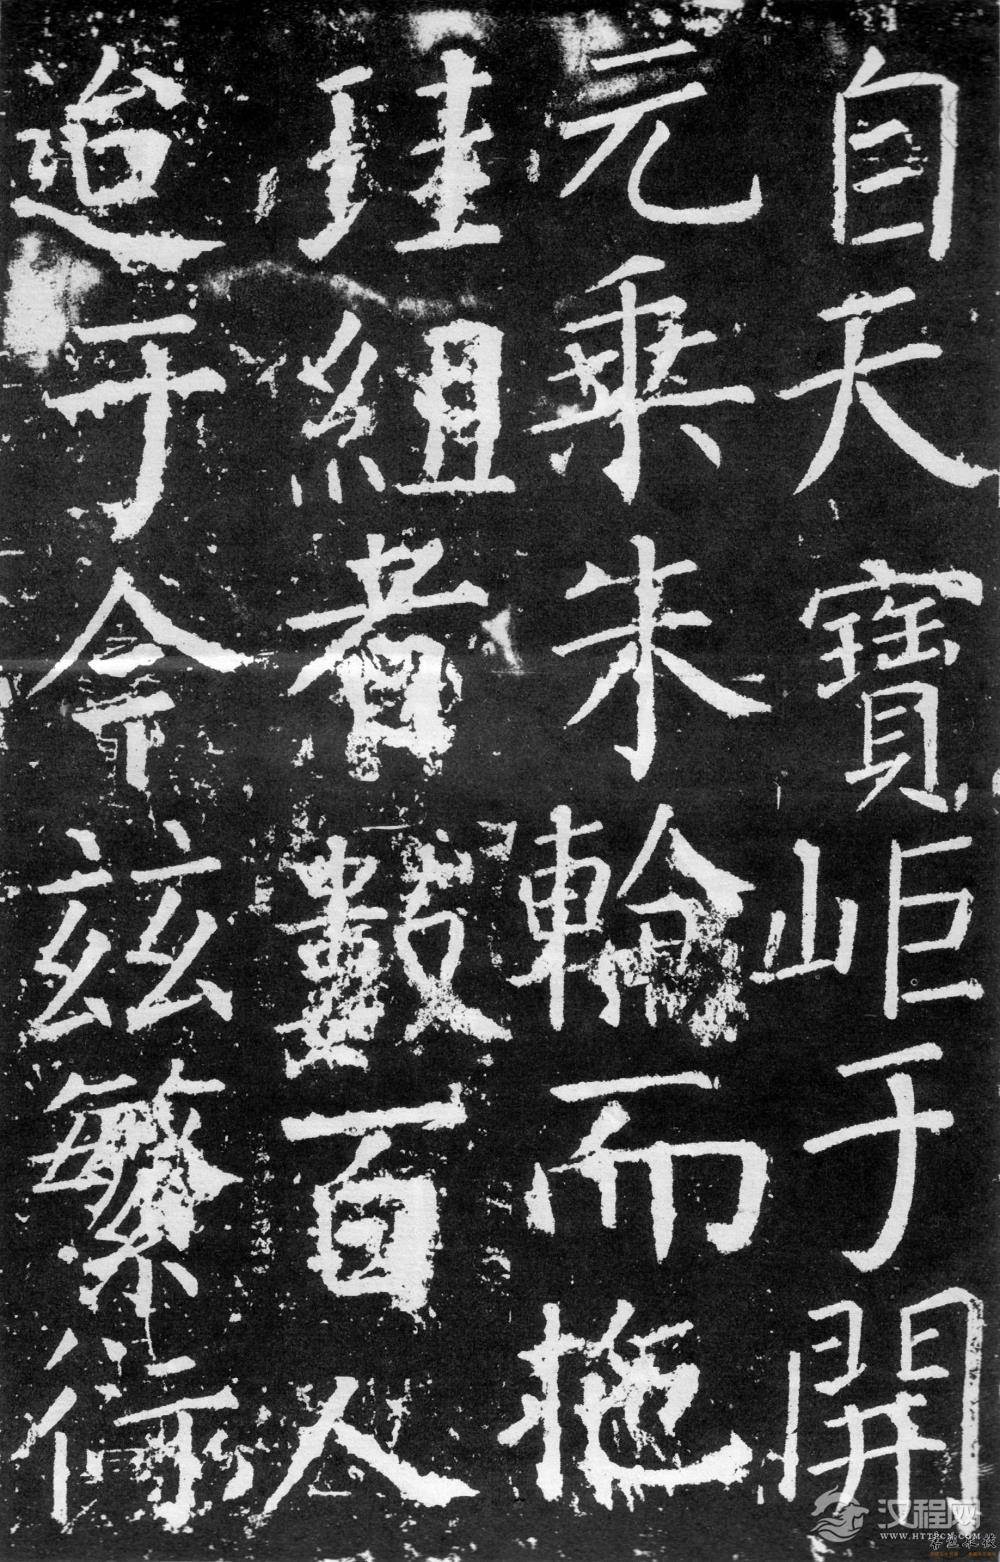 自天寶岠于開
元乘朱輪而拖
珪組者數百人
迨于今茲繁衍
汉程网
WWW.HTTPCN.COM